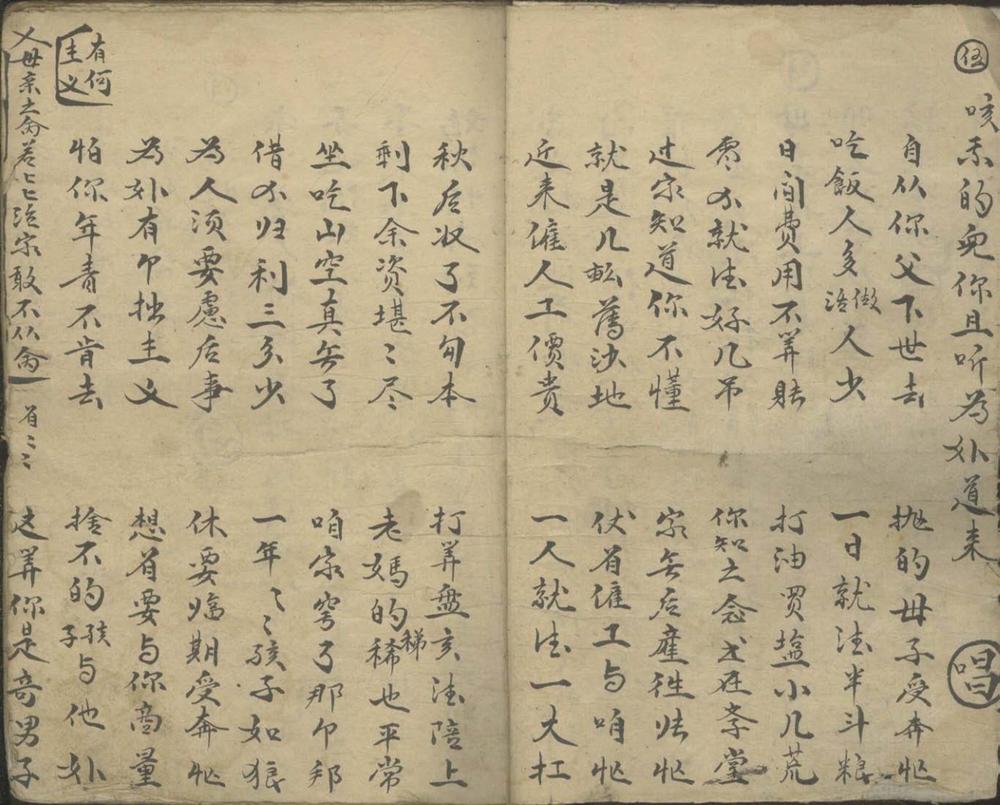 伍
咳 的 你且听为 道来 唱
自从你父下世去 抛的母子受奔忙
吃飯人多做活人少 一日就浔半斗粮
日间費用不筭賬 打油買塩小几荒
零不就浔好几吊 你知之念书在斈堂
过家知道你不懂 家無后産 忙
就是几畝舊沙地 仗着雇工与咱忙
近来雇人工價贵 一人就浔一大扛
秋后收了不句本 打筭盤亥浔陪上
剩下余资堪〻尽 老媽的稀也平常
坐吃山空真無了 咱家穹了那个邦
借不归利三分少 一年〻〻孩子如狼
为人须要慮后事 休要临期受奔忙
为 有个拙主义 想着要与你商量
怕你年青不肯去 捨不的孩子与他
有何主义
父母亲之命 家敢不从命 着〻〻 这筭你是奇男子